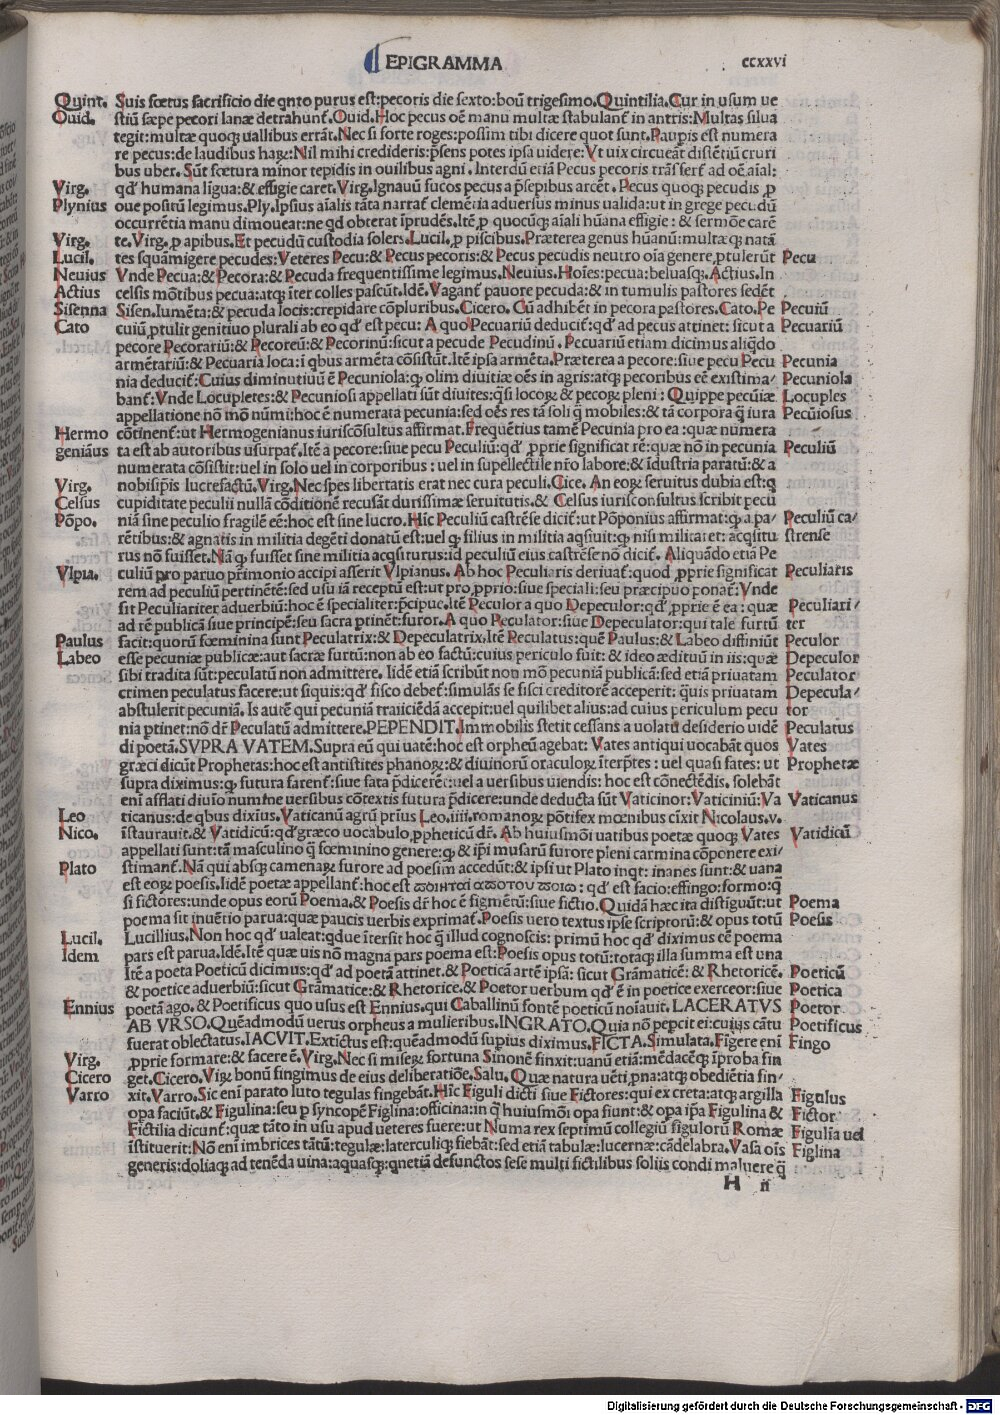 EPIGRAMMA
ccxxvi
Quint. Suis fœtus sacrificio die qnto purus est:pecoris die sexto:boũ trigesimo.Quintilia.Cur in usum ue
Ouid. stiũ sæpe pecori lanæ detrahunt̃.Ouid.Hoc pecus oẽ manu multæ stabulant̃ in antris:Multas silua
tegit:multæ quoq; uallibus errãt.Nec si forte roges:possim tibi dicere quot sunt.Paupis est numera
re pecus:de laudibus haꝝ:Nil mihi credideris:p̃sens potes ipsa uidere:Vt uix circueãt distẽtiũ cruri
bus uber.Sũt fœtura minor tepidis in ouilibus agni.Interdũ etiã Pecus pecoris trãsfert̃ ad oẽ aĩal:
Virg. qď humana ligua:& effigie caret.Virg.Ignauũ fucos pecus a p̃sepibus arcẽt.Pecus quoq; pecudis ꝓ
Plynius oue positũ legimus.Ply.Ipsius aĩalis tãta narrat̃ clemẽtia aduersus minus ualida:ut in grege pecudũ
occurrẽtia manu dimoueat:ne qd obterat ĩprudẽs.Itẽ ꝓ quocũq; aĩali hũana effigie:& sermoẽ carẽ
Virg. te.Virg.ꝓ apibus.Et pecudũ custodia solers.Lucil.ꝓ piscibus.Præterea genus hũanũ:multæq; natã
Lucil. tes squãmigere pecudes:Veteres Pecu:& Pecus pecoris:& Pecus pecudis neutro oĩa genere ꝓtulerũt Pecu
Neuius Vnde Pecua:& Pecora:& Pecuda frequentissime legimus.Neuius.Hoĩes:pecua:beluasq;.Actius.In
Actius celsis mõtibus pecua:atq; ĩter colles pascũt.Idẽ.Vagant̃ pauore pecuda:& in tumulis pastores sedẽt
Sisenna Sisen.Iumẽta:& pecuda locis:crepidare cõpluribus.Cicero.Cũ adhibẽt in pecora pastores.Cato.Pe Pecuiũ
Cato cuiũ ꝓtulit genitiuo plurali ab eo qď est pecu:A quo Pecuariũ deducit̃:qď ad pecus attinet:sicut a Pecuariũ
pecore Pecorariũ:& Pecoreũ:& Pecorinũ:sicut a pecude Pecudinũ.Pecuariũ etiam dicimus aliq̃do
armẽtariũ:& Pecuaria loca:ĩ qbus armẽta cõsistũt.Itẽ ipsa armẽta.Præterea a pecore:siue pecu Pecu Pecunia
nia deducit̃:Cuius diminutiuũ ẽ Pecuniola:q; olim diuitiæ oẽs in agris:atq; pecoribus eẽ existima/ Pecuniola
bant̃:Vnde Locupletes:& Pecuniosi appellati sũt diuites:q̃si locoꝝ:& pecoꝝ:pleni:Quippe pecũiæ Locuples
appellatione nõ mõ nũmi:hoc ẽ numerata pecunia:sed oẽs res tã soli q̃ mobiles:& tã corpora q̃ iura Pecũiosus
Hermo cõtinent̃:ut Hermogenianus iuriscõsultus affirmat.Frequẽtius tamẽ Pecunia pro ea:quæ numera
geniãus ta est ab autoribus usurpat̃.Itẽ a pecore:siue pecu Peculiũ:qď ꝓprie significat rẽ:quæ nõ in pecunia Peculiũ
numerata cõsistit:uel in solo uel in corporibus:uel in supellectile nr̃o labore:& ĩdustria paratũ:& a
Virg. nobisip̃is lucrefactũ.Virg.Nec spes libertatis erat nec cura peculi.Cice.An eoꝝ seruitus dubia est:q
Celsus cupiditate peculii nullã cõditionẽ recusãt durissimæ seruitutis.& Celsus iurisconsultus scribit pecu
Põpo. niã sine peculio fragilẽ eẽ:hoc est sine lucro.Hĩc Peculiũ castrẽse dicit̃:ut Põponius affirmat:q; a pa/ Peculiũ ca/
rẽtibus:& agnatis in militia degẽti donatũ est:uel q; filius in militia aq̃siuit:q; nisi militaret:acq̃situ strense
rus nõ fuisset.Nã q; fuisset sine militia acq̃siturus:id peculiũ eius castrẽse nõ dicit̃.Aliquãdo etiã Pe
Vlpia. culiũ pro paruo pr̃imonio accipi asserit Vlpianus.Ab hoc Peculiaris deriuat̃:quod ꝓprie significat Peculiaris
rem ad peculiũ pertinẽtẽ:sed usu iã receptũ est:ut pro ꝓprio:siue speciali:seu præcipuo ponat̃:Vnde
sit Peculiariter aduerbiũ:hoc ẽ specialiter:p̃cipue.Itẽ Peculor a quo Depeculor:qď ꝓprie ẽ ea:quæ Peculiari/
ad rẽ publicã siue principẽ:seu sacra ꝑtinẽt:furor.A quo Peculator:siue Depeculator:qui tale furtũ ter
Paulus facit:quorũ fœminina sunt Peculatrix:& Depeculatrix.Itẽ Peculatus:quẽ Paulus:& Labeo diffiniũt Peculor
Labeo esse pecuniæ publicæ:aut sacræ furtũ:non ab eo factũ:cuius periculo fuit:& ideo ædituũ in iis:quæ Depeculor
sibi tradita sũt:peculatũ non admittere.Iidẽ etiã scribũt non mõ pecuniã publicã:sed etiã priuatam Peculator
crimen peculatus facere:ut siquis:qď fisco debet̃:simulãs se fisci creditorẽ acceperit:q̃uis priuatam Depecula/
abstulerit pecuniã.Is autẽ qui pecuniã traiiciẽdã accepit:uel quilibet alius:ad cuius periculum pecu tor
nia ꝑtinet:nõ dr̃ Peculatũ admittere.PEPENDIT.Immobilis stetit cessans a uolatu desiderio uidẽ Peculatus
di poetã.SVPRA VATEM.Supra eũ qui uatẽ:hoc est orpheũ agebat:Vates antiqui uocabãt quos Vates
græci dicũt Prophetas:hoc est antistites phanoꝝ:& diuinorũ oraculoꝝ ĩterp̃tes:uel quasi fates:ut Prophetæ
supra diximus:q; futura farent̃:siue fata p̃dicerẽt:uel a uersibus uiendis:hoc est cõnectẽdis.solebãt
enĩ afflati diuĩo numine uersibus cõtextis futura p̃dicere:unde deducta sũt Vaticinor:Vaticiniũ:Va Vaticanus
Leo ticanus:de qbus dixius.Vaticanũ agrũ prĩus Leo.iiii.romanoꝝ põtifex mœnibus cĩxit Nicolaus.v.
Nico. ĩstaurauit.& Vatidicũ:qď græco uocabulo ꝓpheticũ dr̃.Ab huiusmõi uatibus poetæ quoq; Vates Vatidicũ
appellati sunt:tã masculino q̃ fœminino genere:q; & ip̃i musarũ furore pleni carmina cõponere exi/
Plato stimant̃.Nã qui absq; camenaꝝ furore ad poesim accedũt:& ipsi ut Plato inqt:inanes sunt:& uana
est eoꝝ poesis.Iidẽ poetæ appellant̃:hoc est ποιηται αποτου ποιω:qď est facio:effingo:formo:q̃
si fictores:unde opus eorũ Poema.& Poesis dr̃ hoc ẽ figmẽtũ:siue fictio.Quidã hæc ita distiguũt:ut Poema
poema sit inuẽtio parua:quæ paucis uerbis exprimat̃.Poesis uero textus ipse scriptorũ:& opus totũ Poesis
Lucil. Lucillius.Non hoc qď ualeat:qdue ĩtersit hoc q̃ illud cognoscis:primũ hoc qď diximus eẽ poema
Idem pars est parua.Idẽ.Itẽ quæ uis nõ magna pars poema est:Poesis opus totũ:totaq; illa summa est una
Itẽ a poeta Poeticũ dicimus:qď ad poetã attinet.& Poeticã artẽ ipsã:sicut Grãmaticẽ:& Rhetoricẽ. Poeticũ
& poetice aduerbiũ:sicut Grãmatice:& Rhetorice.& Poetor uerbum qď ẽ in poetice exerceor:siue Poetica
Ennius poetã ago.& Poetificus quo usus est Ennius.qui Caballinũ fontẽ poeticũ noĩauit.LACERATVS Poetor
AB VRSO.Quẽadmodũ uerus orpheus a mulieribus.INGRATO.Quia nõ peꝑcit ei:cuius cãtu Poetificus
fuerat oblectatus.IACVIT.Extictus est:quẽadmodũ supius diximus.FICTA.Simulata.Figere enĩ Fingo
Virg. ꝓprie formare:& facere ẽ.Virg.Nec si miseꝝ fortuna Sinonẽ finxit:uanũ etiã:mẽdacẽq; ĩproba fin
Cicero get.Cicero.Viꝝ bonũ fingimus de eius deliberatiõe.Salu.Quæ natura uẽti ꝓna:atq; obediẽtia fin/
Varro xit.Varro.Sic enĩ parato luto tegulas fingebãt.Hĩc Figuli dicti siue Fictores:qui ex creta:atq; argilla Figulus
opa faciũt.& Figulina:seu ꝑ syncopẽ Figlina:officina:in q̃ huiusmõi opa fiunt:& opa ip̃a Figulina & Fictor
Fictilia dicunt̃:quæ tãto in usu apud ueteres fuere:ut Numa rex septimũ collegiũ figulorũ Romæ Figulia uel
ĩstituerit:Nõ enĩ imbrices tãtũ:tegulæ:laterculiq; fiebãt:sed etiã tabulæ:lucernæ:cãdelabra.Vasa oĩs Figlina
generis:doliaq; ad tenẽda uina:aquasq;:qnetiã defunctos sese multi fictilibus soliis condi maluere q̃
H ii
Digitalisierung gefördert durch die Deutsche Forschungsgemeinschaft - DFG